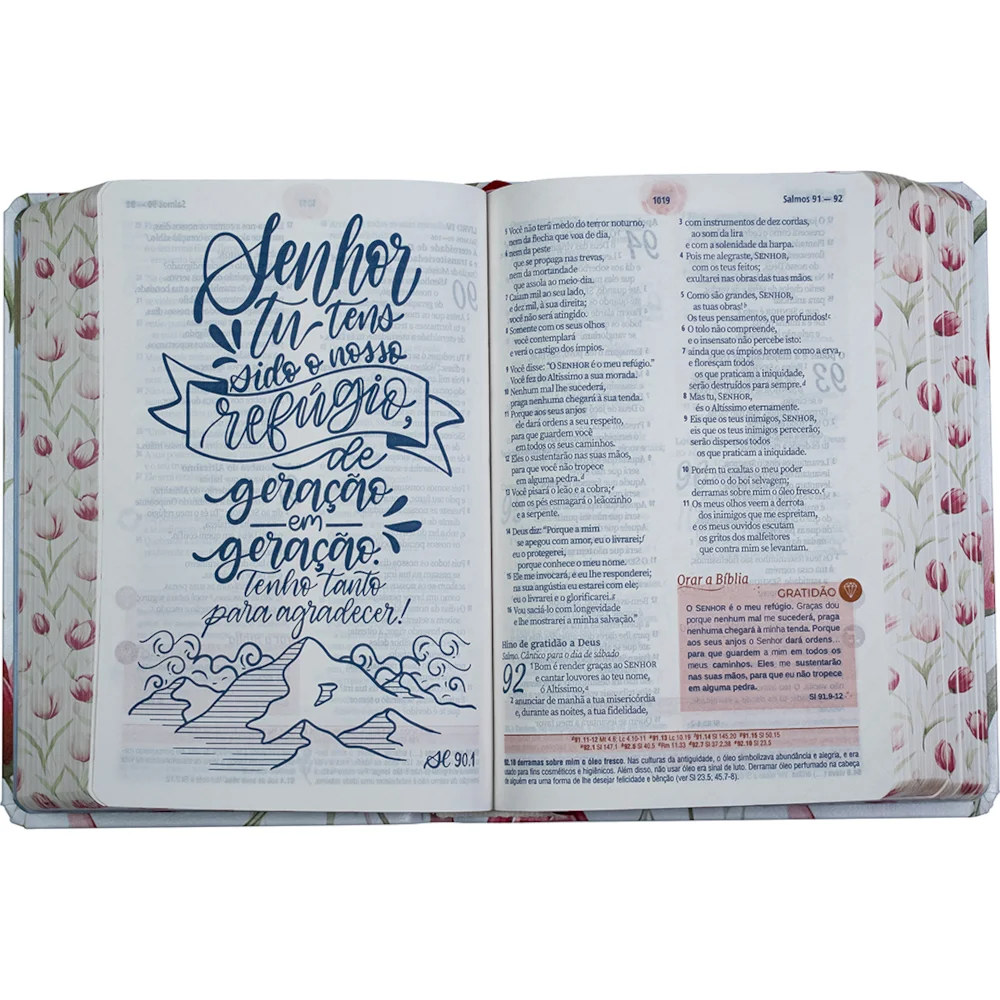 Senhor
tu tens
sido o nosso
refúgio,
de
geração
em
geração.
Tenho tanto
para agradecer!
Sl 90.1
1019
Salmos 91 — 92
5 Você não terá medo do terror noturno,
nem da flecha que voa de dia,
6 nem da peste
que se propaga nas trevas,
nem da mortandade
que assola ao meio-dia.
7 Caiam mil ao seu lado,
e dez mil, à sua direita;
você não será atingido.
8 Somente com os seus olhos
você contemplará
e verá o castigo dos ímpios.
9 Você disse: “O SENHOR é o meu refúgio.”
Você fez do Altíssimo a sua morada.
10 Nenhum mal lhe sucederá,
praga nenhuma chegará à sua tenda.
11 Porque aos seus anjos
ele dará ordens a seu respeito,
para que guardem você
em todos os seus caminhos.
12 Eles o sustentarão nas suas mãos,
para que você não tropece
em alguma pedra.
13 Você pisará o leão e a cobra;
com os pés esmagará o leãozinho
e a serpente.
14 Deus diz: “Porque a mim
se apegou com amor, eu o livrarei;
eu o protegerei,
porque conhece o meu nome.
15 Ele me invocará, e eu lhe responderei;
na sua angústia eu estarei com ele;
eu o livrarei e o glorificarei.
16 Vou saciá-lo com longevidade
e lhe mostrarei a minha salvação.”
Hino de gratidão a Deus
Salmo. Cântico para o dia de sábado
92 1 Bom é render graças ao SENHOR
e cantar louvores ao teu nome,
ó Altíssimo,
2 anunciar de manhã a tua misericórdia
e, durante as noites, a tua fidelidade,
3 com instrumentos de dez cordas,
ao som da lira
e com a solenidade da harpa.
4 Pois me alegraste, SENHOR,
com os teus feitos;
exultarei nas obras das tuas mãos.
5 Como são grandes, SENHOR,
as tuas obras!
Os teus pensamentos, que profundos!
6 O tolo não compreende,
e o insensato não percebe isto:
7 ainda que os ímpios brotem como a erva,
e floresçam todos
os que praticam a iniquidade,
serão destruídos para sempre.
8 Mas tu, SENHOR,
és o Altíssimo eternamente.
9 Eis que os teus inimigos, SENHOR,
eis que os teus inimigos perecerão;
serão dispersos todos
os que praticam a iniquidade.
10 Porém tu exaltas o meu poder
como o do boi selvagem;
derramas sobre mim o óleo fresco.
11 Os meus olhos veem a derrota
dos inimigos que me espreitam,
e os meus ouvidos escutam
os gritos dos malfeitores
que contra mim se levantam.
Orar a Bíblia
GRATIDÃO
O SENHOR é o meu refúgio. Graças dou
porque nenhum mal me sucederá, praga
nenhuma chegará à minha tenda. Porque
aos seus anjos o Senhor dará ordens...
para que guardem a mim em todos os
meus caminhos. Eles me sustentarão
nas suas mãos, para que eu não tropece
em alguma pedra.
Sl 91.9-12
91.11-12 Mt 4.6; Lc 4.10-11 91.13 Lc 10.19 91.14 Sl 145.20 91.16 Sl 50.15
92.1 Sl 147.1 92.5 Sl 40.5 Rm 11.33 92.7 Sl 37.2,38 92.10 Sl 23.5
92.10 derramas sobre mim o óleo fresco. Nas culturas da antiguidade, o óleo simbolizava abundância e alegria, e era
usado para fins cosméticos e higiênicos. Além disso, não usar óleo era sinal de luto. Derramar óleo perfumado na cabeça
de alguém era uma forma de lhe desejar felicidade e bênção (ver Sl 23.5; 45.7-8).